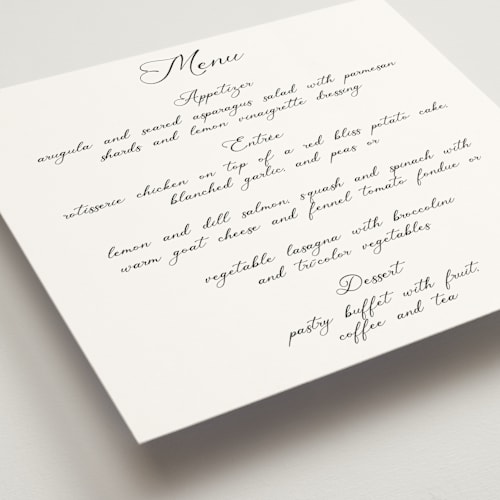 Menu
Appetizer
arugula and seared asparagus salad with parmesan
shards and lemon vinaigrette dressing
Entrée
rotisserie chicken on top of a red bliss potato cake,
blanched garlic, and peas or
lemon and dill salmon, squash and spinach with
warm goat cheese and fennel tomato fondue or
vegetable lasagna with broccolini
and tricolor vegetables
Dessert
pastry buffet with fruit,
coffee and tea